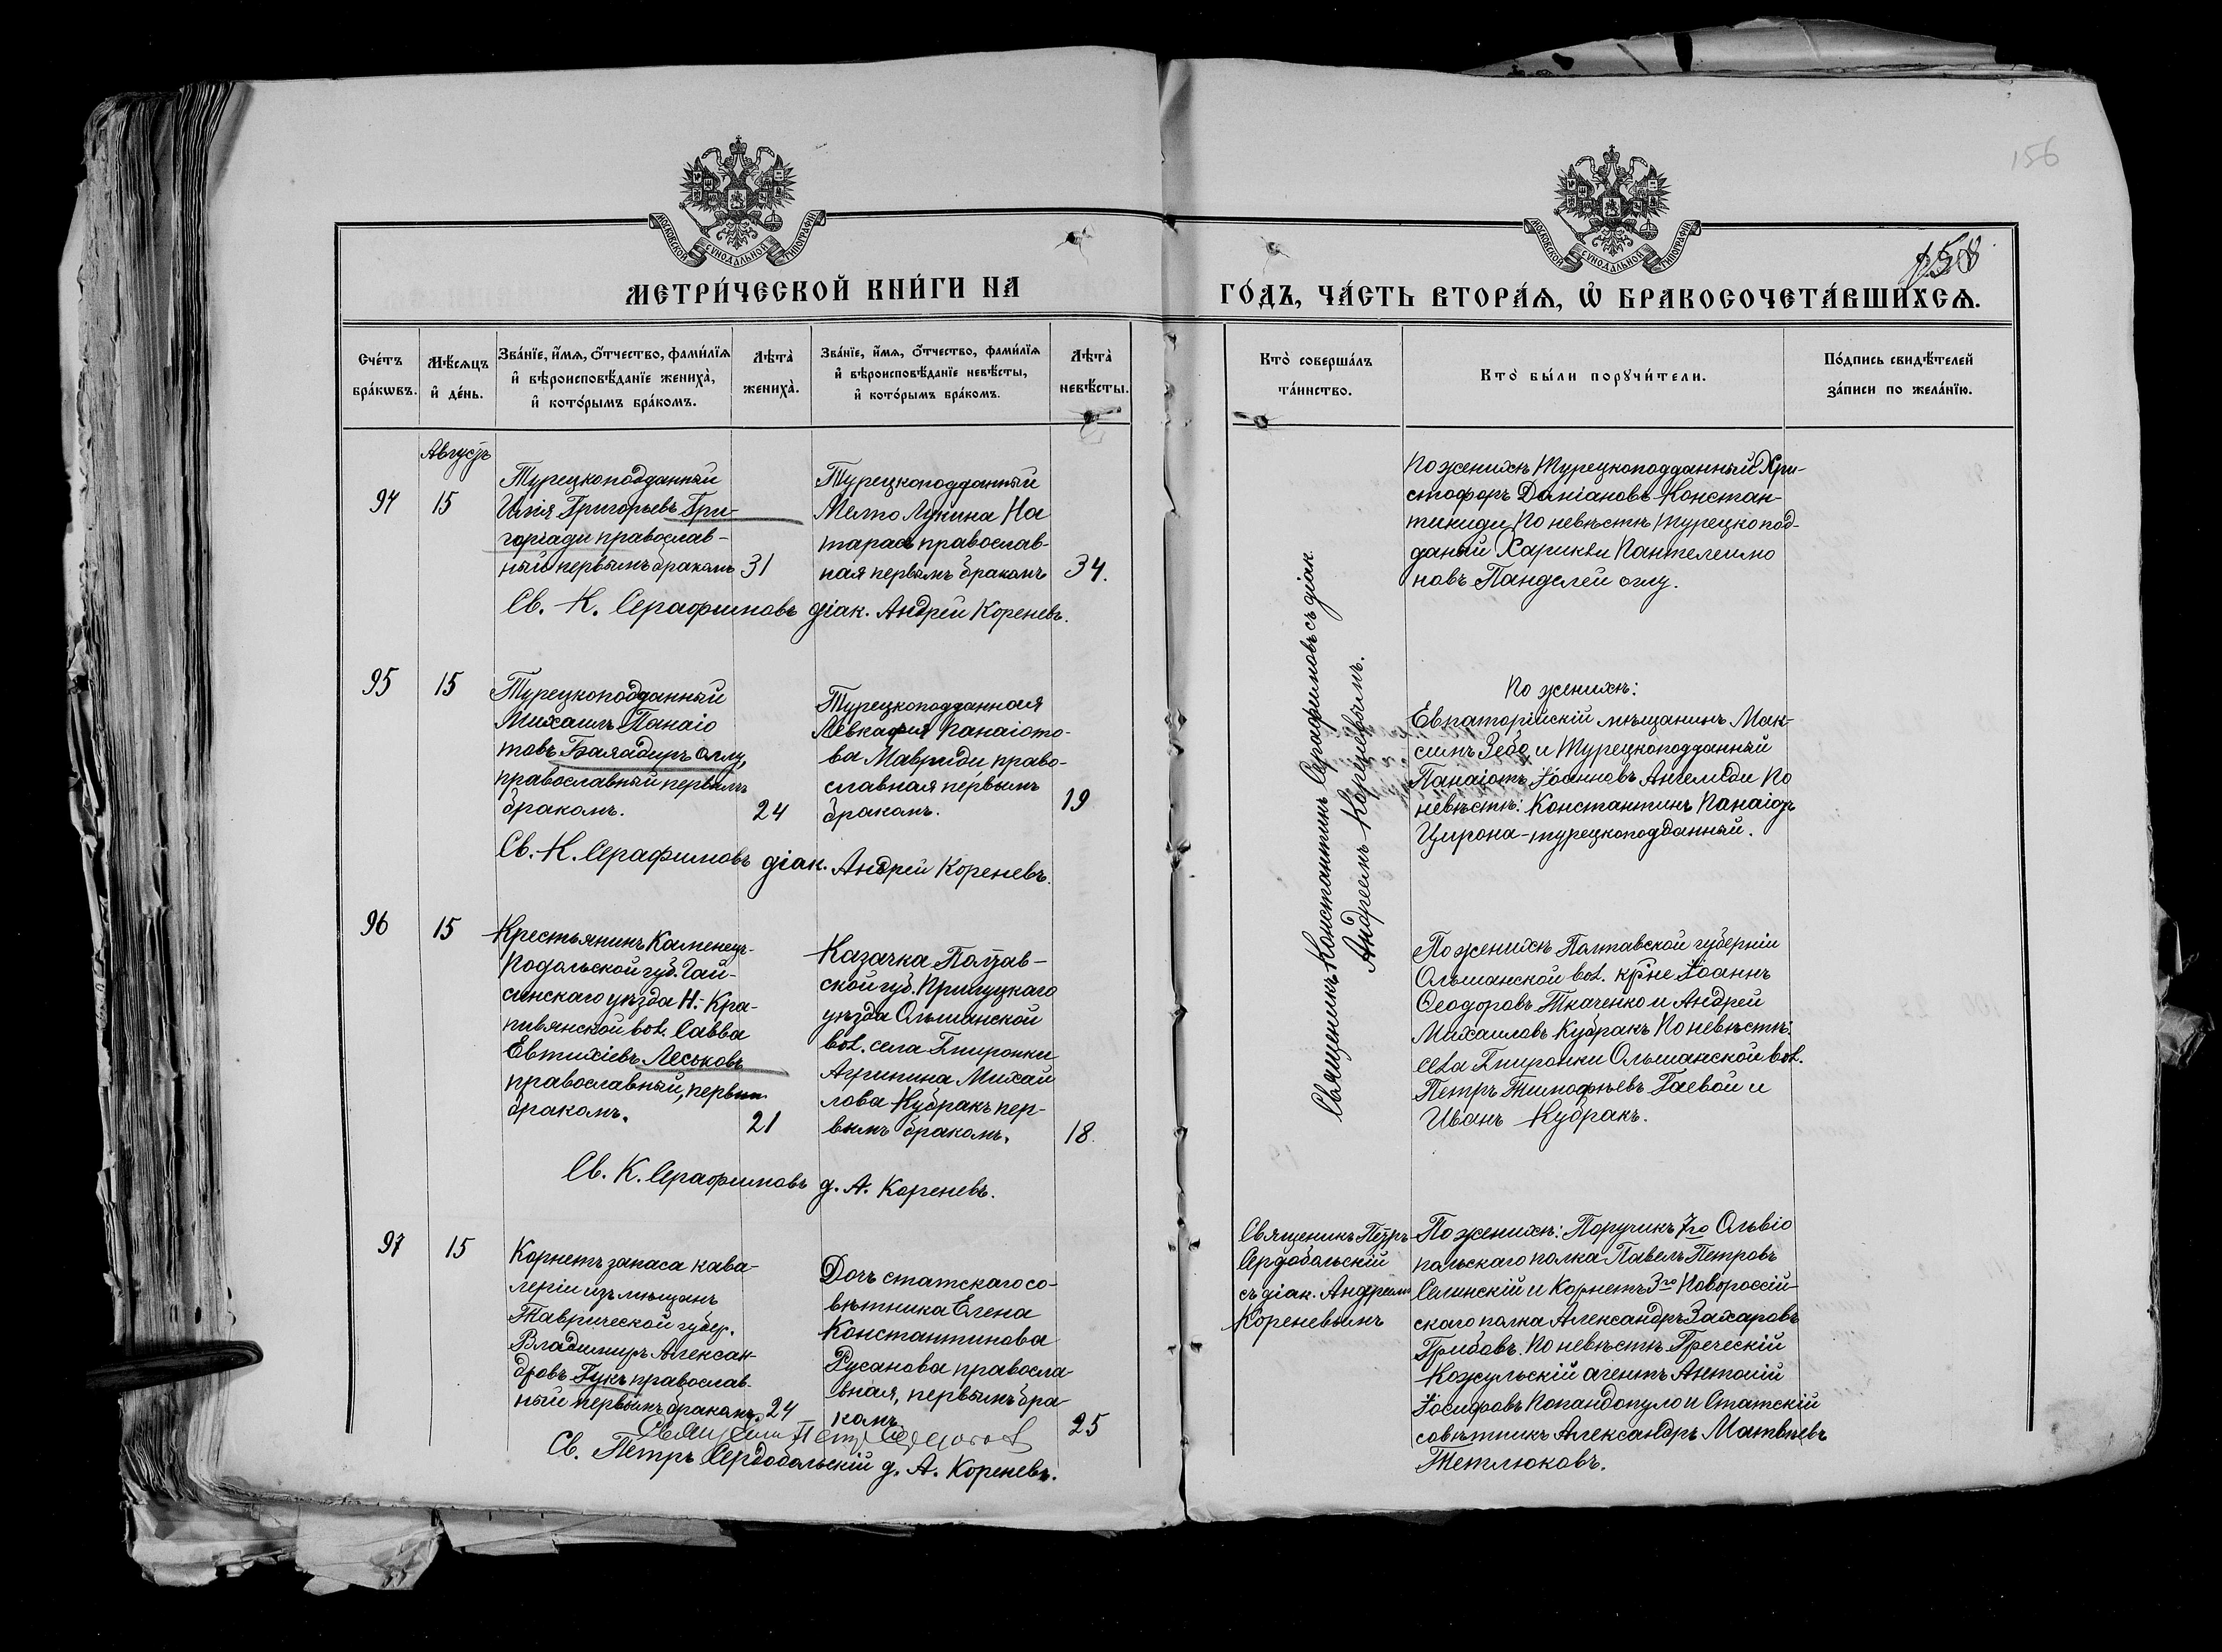 156
МОСКОВСКОЙ СѴНОДАЛЬНОЙ ТИПОГРАФІИ
МОСКОВСКОЙ СѴНОДАЛЬНОЙ ТИПОГРАФІИ
158
МЕТРИ́ЧЕСКОЙ КНИ́ГИ НА
ГО́ДЪ, ЧА́СТЬ ВТОРА́Ѧ, Ѡ҆ БРАКОСОЧЕТА́ВШИХСѦ.
Сче́тъ бра́кωвъ.
Мѣ́сяцъ и҆ де́нь.
Зва́нїе, и҆́мѧ, ѻ҆́тчество, фами́лїѧ
и҆ вѣроисповѣ́данїе жениха̀,
и҆ кото́рымъ бра́комъ.
Лѣта̀ жениха̀.
Зва́нїе, и҆́мѧ, ѻ҆́тчество, фами́лїѧ
и҆ вѣроисповѣ́данїе невѣ́сты,
и҆ кото́рымъ бра́комъ.
Лѣта̀ невѣ́сты.
Кто̀ соверша́лъ
та́инство.
Кто̀ бы́ли порꙋчи́тели.
По́дпись свидѣ́телей
за́писи по жела́нїю.
Августъ
94
15
Турецкоподданный
Илія Григорьевъ Гри-
горіади православ-
ный первымъ бракомъ
31
Турецкоподданный
Мелпо Лукина На
тарасъ православ-
ная первымъ бракомъ
34.
Св. К. Серафимовъ діак. Андрей Кореневъ.
Священникъ Константинъ Серафимовъ съ діак.
Андреемъ Кореневымъ.
По женихѣ Турецкоподданный Хри-
стофоръ Даміановъ Констан-
тиниди По невѣстѣ турецкопод-
даный Харикли Пантелеимо
новъ Панделей оглу.
95
15
Турецкоподданный
Михаилъ Панаіо
товъ Баладиръ оглу,
православный первымъ
бракомъ.
24
Турецкоподданная
Левкафия Панаіото-
ва Мавриди право-
славная первымъ
бракомъ.
19
Св. К. Серафимовъ діак. Андрей Кореневъ.
По женихѣ:
Евпаторійскій мѣщанинъ Мак-
симъ Зебо и Турецкоподданный
Панаіотъ Іоанновъ Ангелиди По
невѣстѣ: Константинъ Панаіотъ
Цирона-турецкоподданный.
96
15
Крестьянинъ Каменецъ-
Подольской губ. Гай-
синскаго уѣзда Н.-Кра-
пивянской вол. Савва
Евтихіевъ Леськовъ
православный, первым
бракомъ.
21
Казачка Полтав-
ской губ. Прилуцкаго
уѣзда Ольшанской
вол. села Гмиронки
Агрипина Михай
лова Кубракъ пер-
вымъ бракомъ.
18.
Св. К. Серафимовъ д. А. Кореневъ.
По женихѣ Полтавской губерніи
Ольшанской вол. кр̃не Іоаннъ
Ѳеодоровъ Ткаченко и Андрей
Михаиловъ Кубракъ По невѣстѣ:
села Гмиронки Ольшанской вол.
Петръ Тимофѣевъ Гаевой и
Иванъ Кубракъ.
97
15
Корнетъ запаса кава-
леріи изъ мѣщанъ
Таврической губер.
Владимиръ Алексан-
дровъ Гукъ православ-
ный первымъ бракомъ.
24
Дочь статскаго со-
вѣтника Елена
Константинова
Русанова правосла
вная, первымъ бра
комъ
25
Св. Петръ Сердобольскій д. А. Кореневъ.
Священникъ Петръ
Сердобольскій
съ діак. Андреемъ
Кореневымъ
По женихѣ: Поручикъ 7го Ольвіо
польскаго полка Павелъ Петровъ
Селинскій и Корнетъ 3го Новороссій-
скаго полка Александръ Захаровъ
Грибовъ. По невѣстѣ Греческій
Консульскій агентъ Антоній
Іосифовъ Попандопуло и Статскій
совѣтникъ Александръ Матвѣевъ
Тетлюковъ.